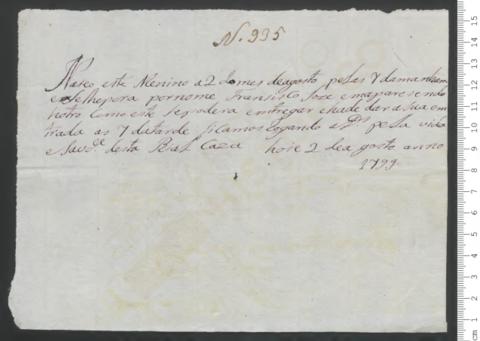 N. 935
Naceo este Menino a 2 do mes de agosto pelas 7 damanham
esselhepora pornome Fransisco Jose e maparesendo
hotro como este sepodera entregar ehade dar a sua em
trada as 7 datarde ficamos rogando a Ds pela vida
e saude desta Real Caza hoie 2 de agosto anno
1799